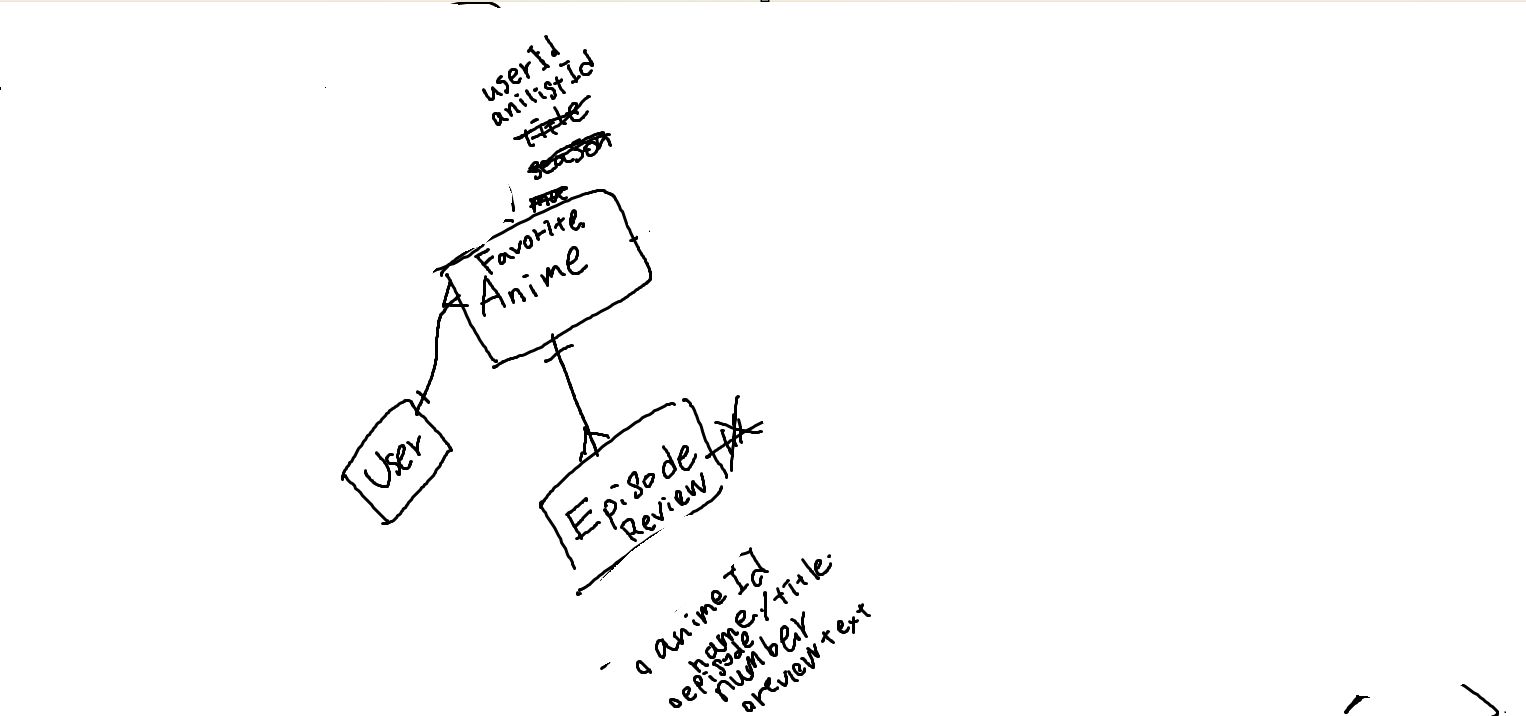 userId
anilistId
title
season
Favorite
Anime
User
Episode
Review
animeId
name/title
episode
number
reviewtext